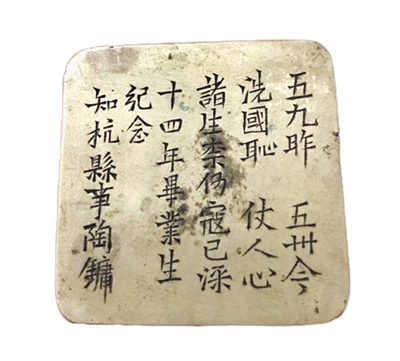 五九昨 五卅今
洗國恥 仗人心
諸生柰何寇已深
十四年畢業生
紀念
知杭縣事陶鏞